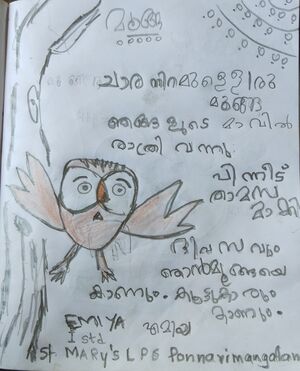 മൂങ്ങ
ചാര നിറമുള്ളൊരു
മൂങ്ങ
ഞങ്ങളുടെ മാവിൽ
രാത്രി വന്നു.
പിന്നീട്
താമസ
മാക്കി
ദിവസവും
ഞാൻമൂങ്ങയെ
കാണും. കൂട്ടുകാരും
കാണും.
EMIYA എമിയ
I std
St. MARY'S L P S Ponnarimangalam